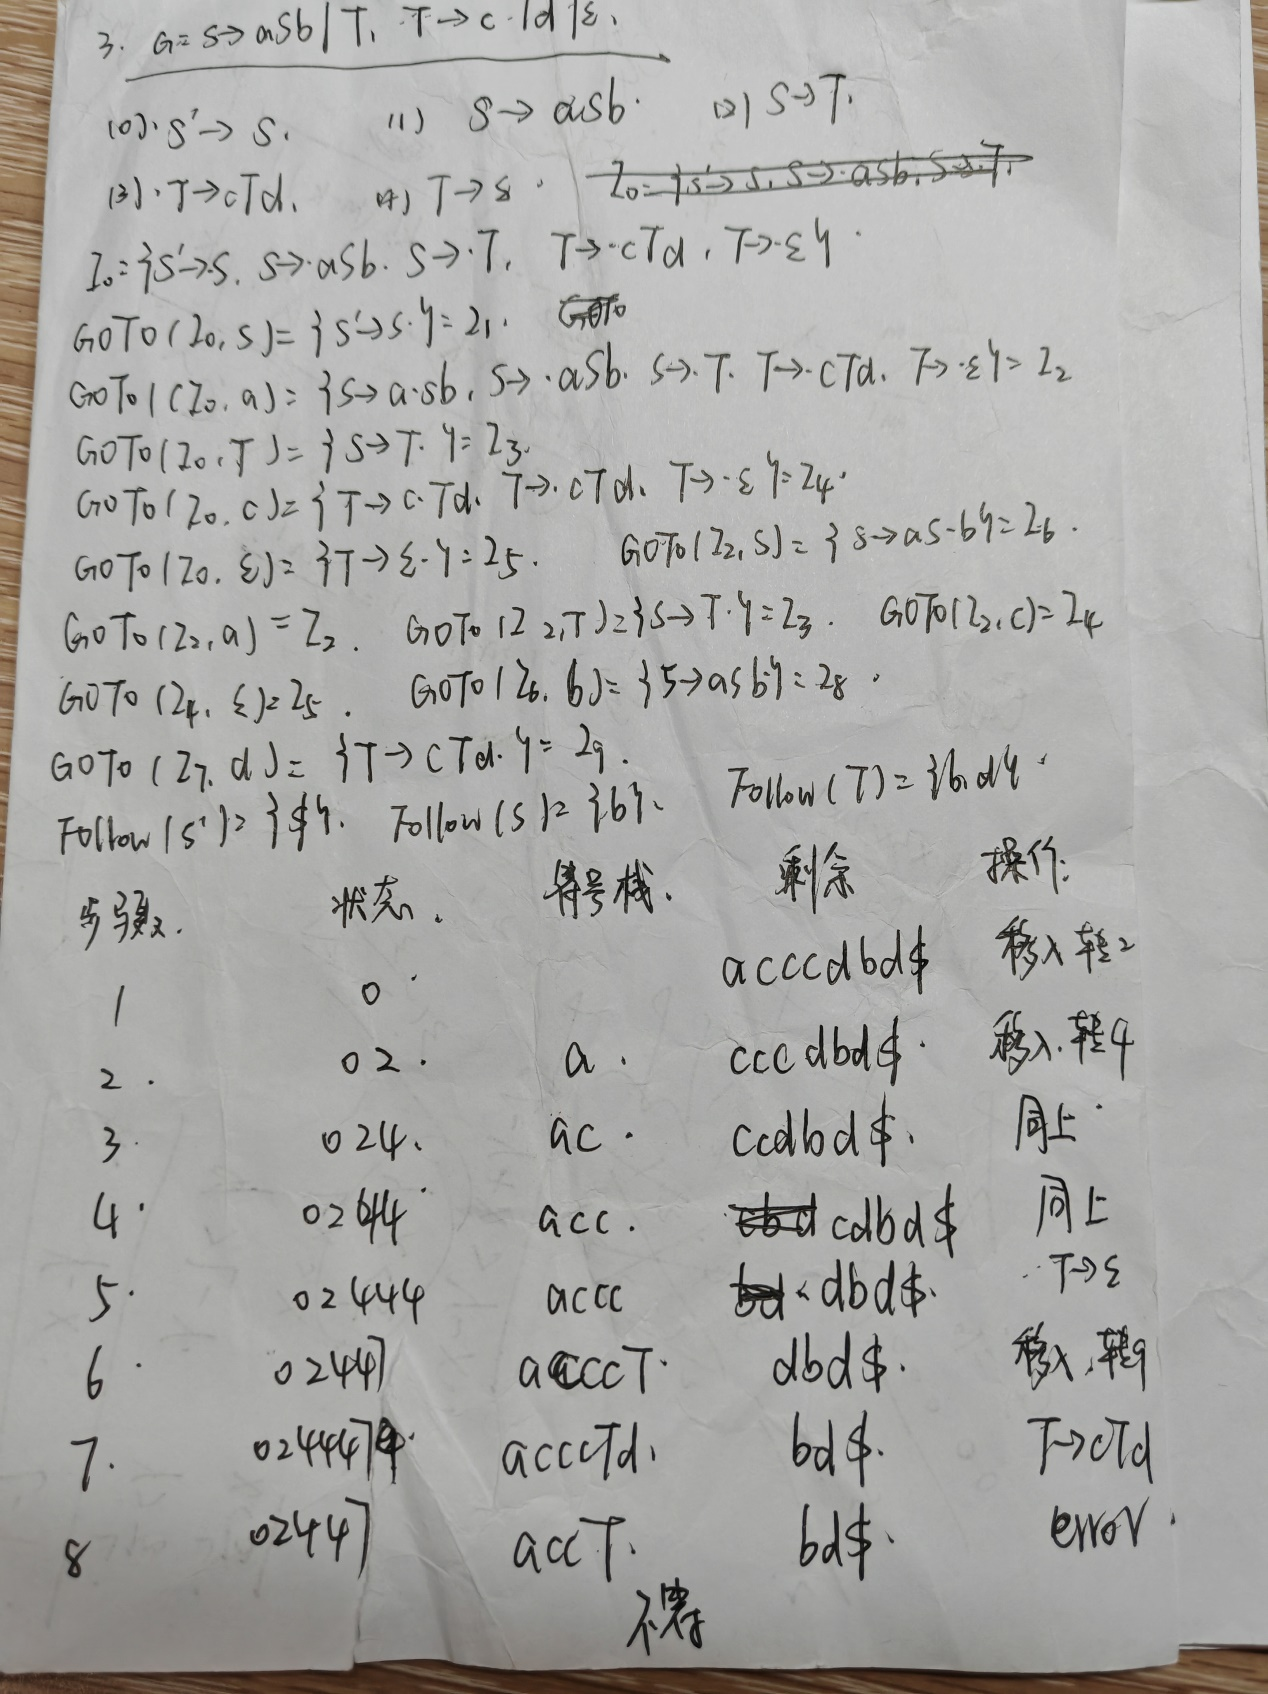 3. G= S→aSb|T, T→c·Td|ε.
(0). S'→S. (1) S→aSb. (2) S→T.
(3). T→cTd. (4) T→ε. I₀={S'→S. S→·aSb. S→·T.
I₀={S'→·S. S→·aSb. S→·T, T→·cTd, T→·ε}.
GOTO(I₀,S)={S'→S·}=I₁. GOTO
GOTO(I₀,a)={S→a·Sb, S→·aSb. S→·T. T→·cTd. T→·ε}=I₂
GOTO(I₀,T)={S→T·}=I₃.
GOTO(I₀,c)={T→c·Td. T→·cTd. T→·ε}=I₄.
GOTO(I₀,ε)={T→ε·}=I₅. GOTO(I₂,S)={S→aS·b}=I₆.
GOTO(I₂,a)=I₂. GOTO(I₂,T)={S→T·}=I₃. GOTO(I₂,c)=I₄
GOTO(I₄,ε)=I₅. GOTO(I₆,b)={S→aSb·}=I₈.
GOTO(I₇,d)={T→cTd·}=I₉.
Follow(S')={$}. Follow(S)={b}. Follow(T)={b,d}.
步骤. 状态. 符号栈. 剩余 操作:
1 0 acccdbd$ 移入转2
2. 02. a. cccdbd$. 移入.转4
3. 024. ac. ccdbd$. 同上
4. 0244 acc. cdbd$ 同上
5. 02444 accc dbd$. T→ε
6. 02447 acccT. dbd$. 移入,转9
7. 0244479. acccTd. bd$. T→cTd
8 02447 accT. bd$. error.